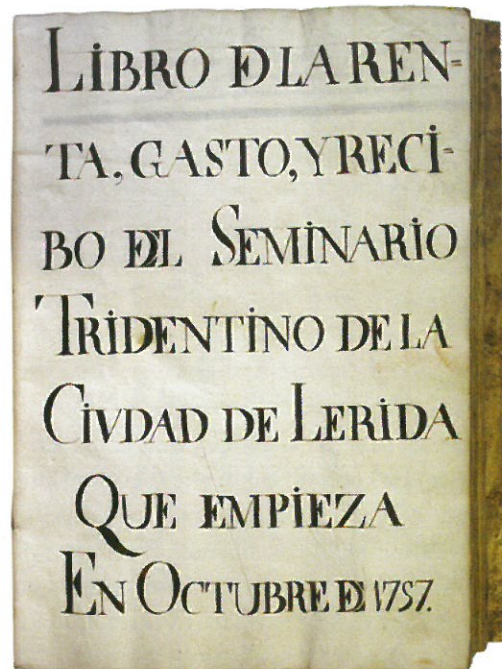 LIBRO DE LA REN=
TA, GASTO, Y RECI=
BO DEL SEMINARIO
TRIDENTINO DE LA
CIVDAD DE LERIDA
QUE EMPIEZA
EN OCTUBRE DE 1757.